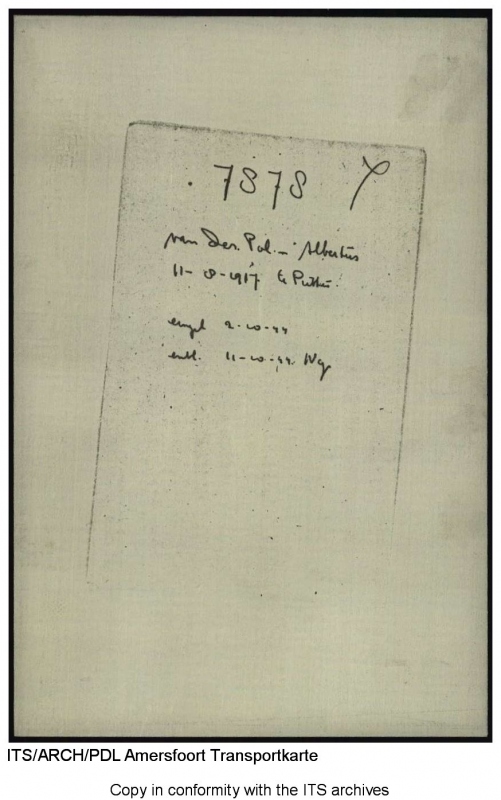 7878
van Der Pol - Albertus
11-8-1917 te Putten
eingel 2-10-44
entl. 11-10-44
ITS/ARCH/PDL Amersfoort Transportkarte
Copy in conformity with the ITS archives